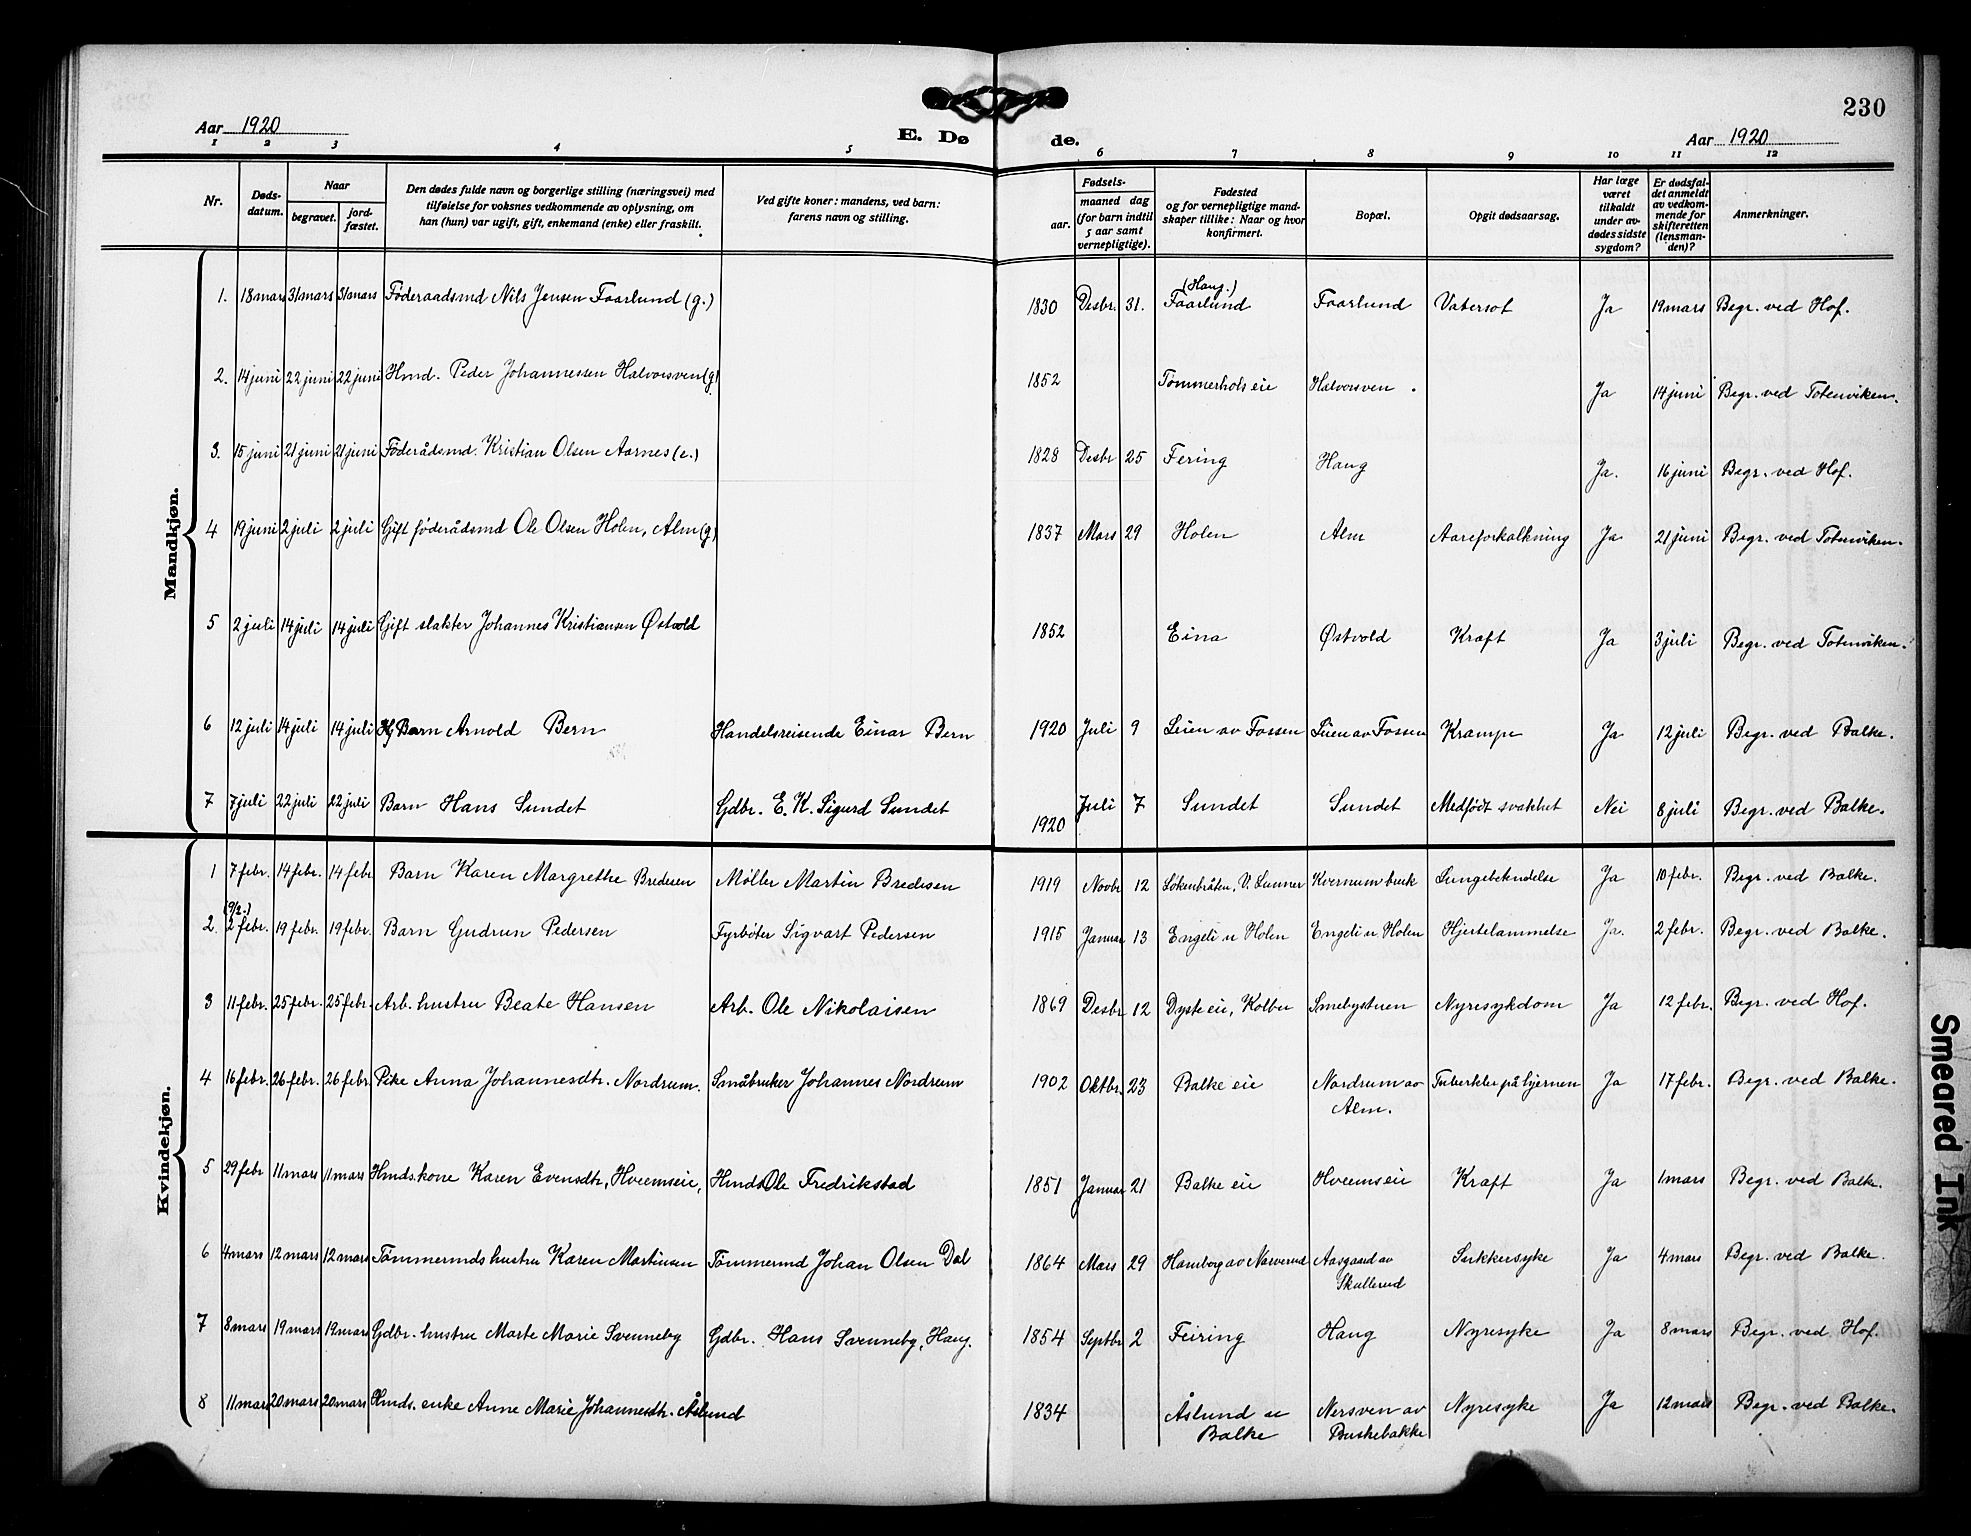 230
Aar 1920
E. Dø de.
Aar 1920
1 2 3 4 5 6 7 8 9 10 11 12
Nr.
Døds-
datum.
Naar
begravet.
jord-
fæstet.
Den dødes fulde navn og borgerlige stilling (næringsvei) med
tilføielse for voksnes vedkommende av oplysning, om
han (hun) var ugift, gift, enkemand (enke) eller fraskilt.
Ved gifte koner: mandens, ved barn:
farens navn og stilling.
Fødsels-
aar.
maaned dag
(for barn indtil
5 aar samt
vernepligtige).
Fødested
og for vernepligtige mand-
skaper tillike: Naar og hvor
konfirmert.
Bopæl.
Opgit dødsaarsag.
Har læge
været
tilkaldt
under av-
dødes sidste
sygdom?
Er dødsfal-
det anmeldt
av vedkom-
mende for
skifteretten
(lensman-
den)?
Anmerkninger.
Mandkjøn.
(Haug.)
1. 18 mars 31 mars 31 mars Føderaadsmd Nils Jensen Faarlund (g.) 1830 Desbr. 31. Faarlund Faarlund Vatersot Ja 19 mars Begr. ved Hof.
2. 14 juni 22 juni 22 juni Hmd. Peder Johannessen Halvorsven (g) 1852 Tømmerhols eie Halvorsven. Ja 14 juni Begr. ved Totenviken.
3. 15 juni 21 juni 21 juni Føderådsmd. Kristian Olsen Aarnes (e.) 1828 Desbr 25 Fering Haug Ja. 16 juni Begr. ved Hof.
4 19 juni 2 juli 2 juli Gift føderådsmd Ole Olsen Holen, Alm (g) 1837 Mars 29 Holen Alm Aareforkalkning Ja 21 juni Begr. ved Totenviken.
5 2 juli 14 juli 14 juli Gift slakter Johannes Kristiansen Østvold 1852 Eina Østvold Kræft Ja 3 juli Begr. ved Totenviken.
6 12 juli 14 juli 14 juli Hj Barn Arnold Bern Handelsreisende Einar Bern 1920 Juli 9 Leien av Fossen Leien av Fossen Krampe Ja 12 juli Begr. ved Balke.
7 7 juli 22 juli 22 juli Barn Hans Sundet Gdbr. E. K. Sigurd Sundet 1920 Juli 7 Sundet Sundet Medfødt svakhet Nei 8 juli Begr. ved Balke.
Kvindekjøn.
1 7 febr. 14 febr. 14 febr Barn Karen Margrethe Bredesen Møller Martin Bredesen 1919 Novbr 12 Løkenbråten, V. Lunner Kvernumbruk Lungebetendelse Ja 10 febr. Begr. ved Balke.
(9/2.)
2. 2 febr. 19 febr. 19 febr. Barn Gudrun Pedersen Fyrbøter Sigvart Pedersen 1915 Januar 13 Engeli u Holen Engeli u Holen Hjertelammelse Ja. 2 febr. Begr. ved Balke.
3 11 febr. 25 febr. 25 febr. Arb. hustru Beate Hansen Arb. Ole Nikolaisen 1869 Desbr 12 Dyste eie, Kolbu Smebystuen Nyresykdom Ja 12 febr. Begr. ved Hof.
4 16 febr. 26 febr. 26 febr. Pike Anna Johannesdtr. Nordrum. Småbruker Johannes Nordrum 1902 Oktbr. 23 Balke eie Nordrum av Tuberkler på hjernen Ja 17 febr. Begr. ved Balke.
Alm.
5 29 febr 11 mars 11 mars Hmds. kone Karen Evensdtr, Hveemseie, Hmd. Ole Fredrikstad 1851 Januar 21 Balke eie Hveemseie Kræft Ja 1 mars Begr. ved Balke.
6 4 mars 12 mars 12 mars Tømmermds hustru Karen Martinsen Tømmermd Johan Olsen Dal 1864 Mars 29 Hamborg av Narverud Aasgaard av Sukkersyke Ja 4 mars Begr. ved Balke.
Skullerud
7 8 mars 19 mars 19 mars Gdbr. hustru Marte Marie Svenneby Gdbr. Hans Svenneby, Haug. 1854 Septbr 2 Feiring Haug Nyresyke Ja 8 mars Begr. ved Hof.
8 11 mars 20 mars 20 mars Hmds. enke Anne Marie Johannesdtr. Åslund 1834 Åslund u Nersven av Nyresyke Ja 12 mars Begr. ved Balke.
Balke Buskebakke
Smeared Ink